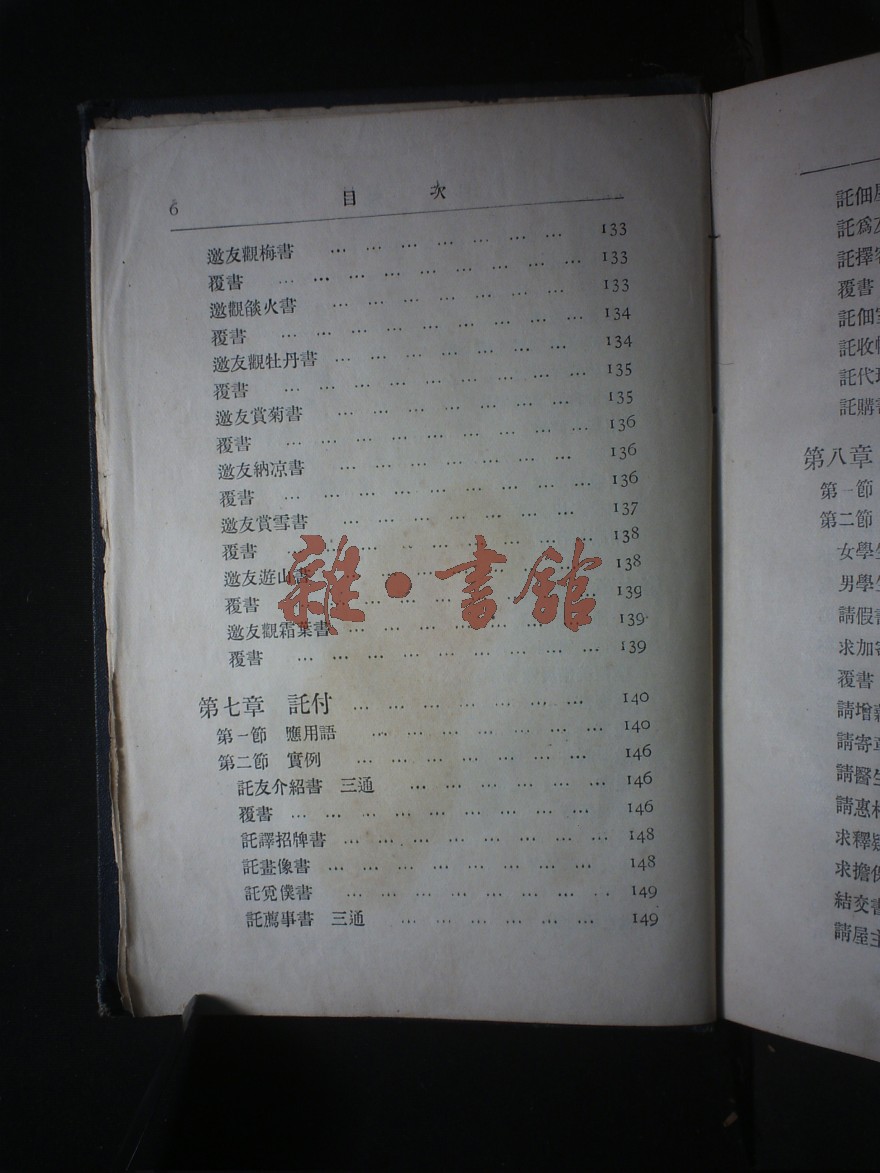 6 目 次
邀友觀梅書 … … … … … … … 133
覆書 … … … … … … … … … 133
邀觀燄火書 … … … … … … … 133
覆書 … … … … … … … … … 134
邀友觀牡丹書 … … … … … … … 134
覆書 … … … … … … … … … 135
邀友賞菊書 … … … … … … … 135
覆書 … … … … … … … … … 136
邀友納凉書 … … … … … … … 136
覆書 … … … … … … … … … 136
邀友賞雪書 … … … … … … … 137
覆書 … … … … … … … … … 138
邀友遊山書 … … … … … … … 138
覆書 … … … … … … … … … 139
邀友觀霜葉書 … … … … … … … 139
覆書 … … … … … … … … … 139
第七章 託付 … … … … … … … 140
第一節 應用語 … … … … … … … 140
第二節 實例 … … … … … … … 146
託友介紹書 三通 … … … … … … 146
覆書 … … … … … … … … … 146
託譯招牌書 … … … … … … … … 148
託畫像書 … … … … … … … … 148
託覓僕書 … … … … … … … … 149
託薦事書 三通 … … … … … … 149
雜·書館
託佃
託爲
託擇
覆書
託佃
託收
託代
託購
第八章
第一節
第二節
女學
男學
請假
求加
覆書
請增
請寄
請醫
請惠
求釋
求擔
結交
請屋